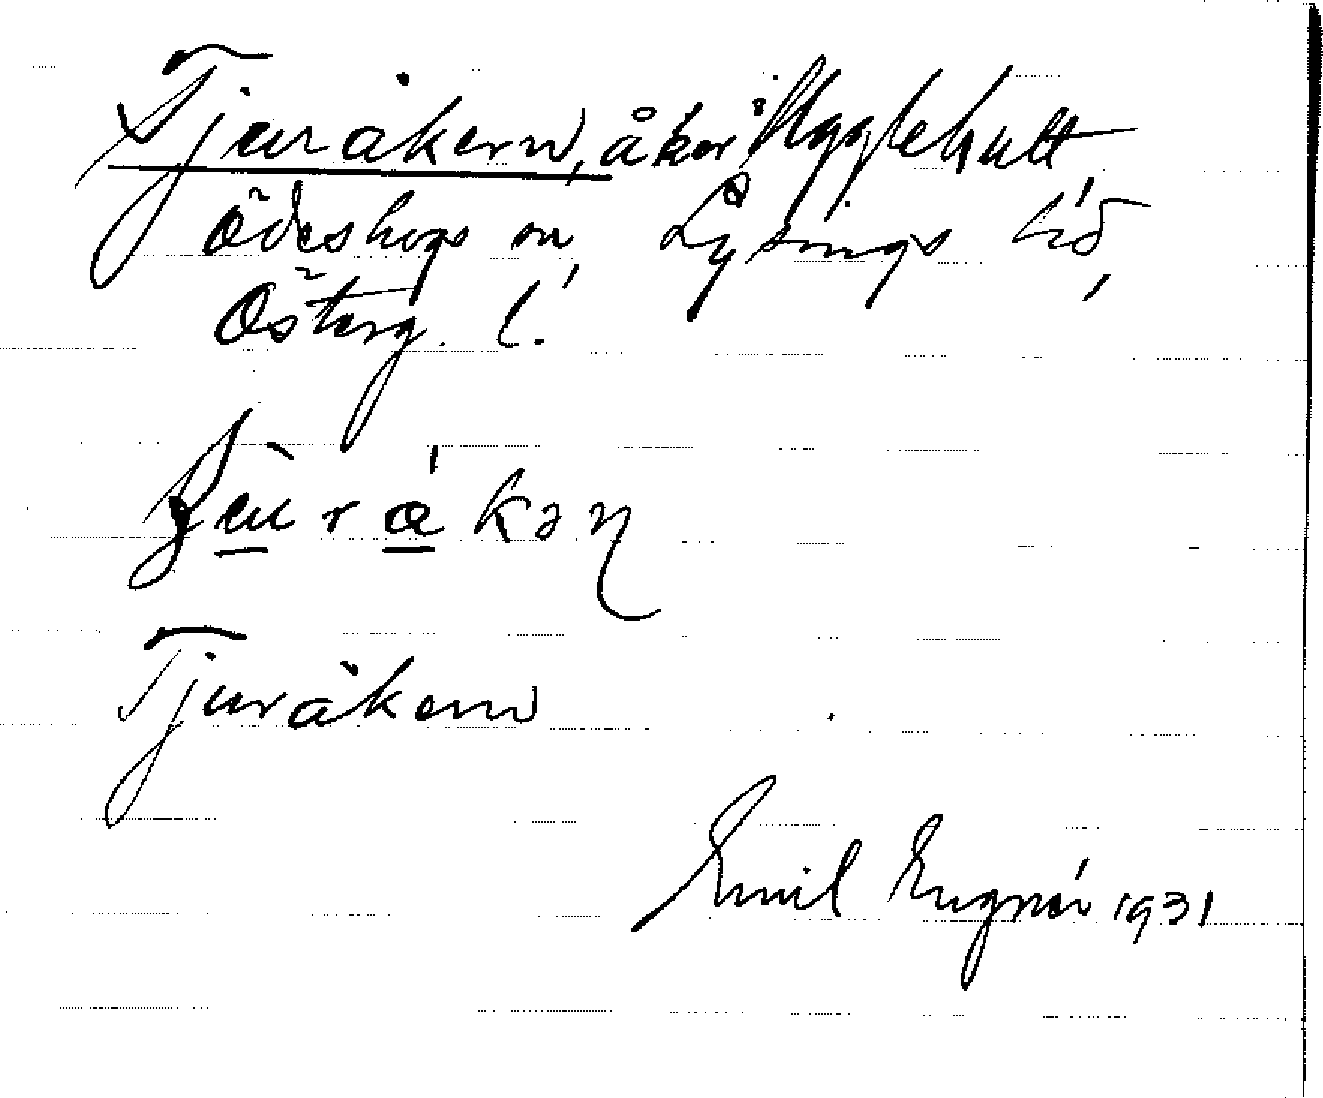 Tjuråkern, åker i Ugglehult
Ödeshögs sn, Lysings hd,
Österg. l.
Tjuråkern
Emil Engnér 1931